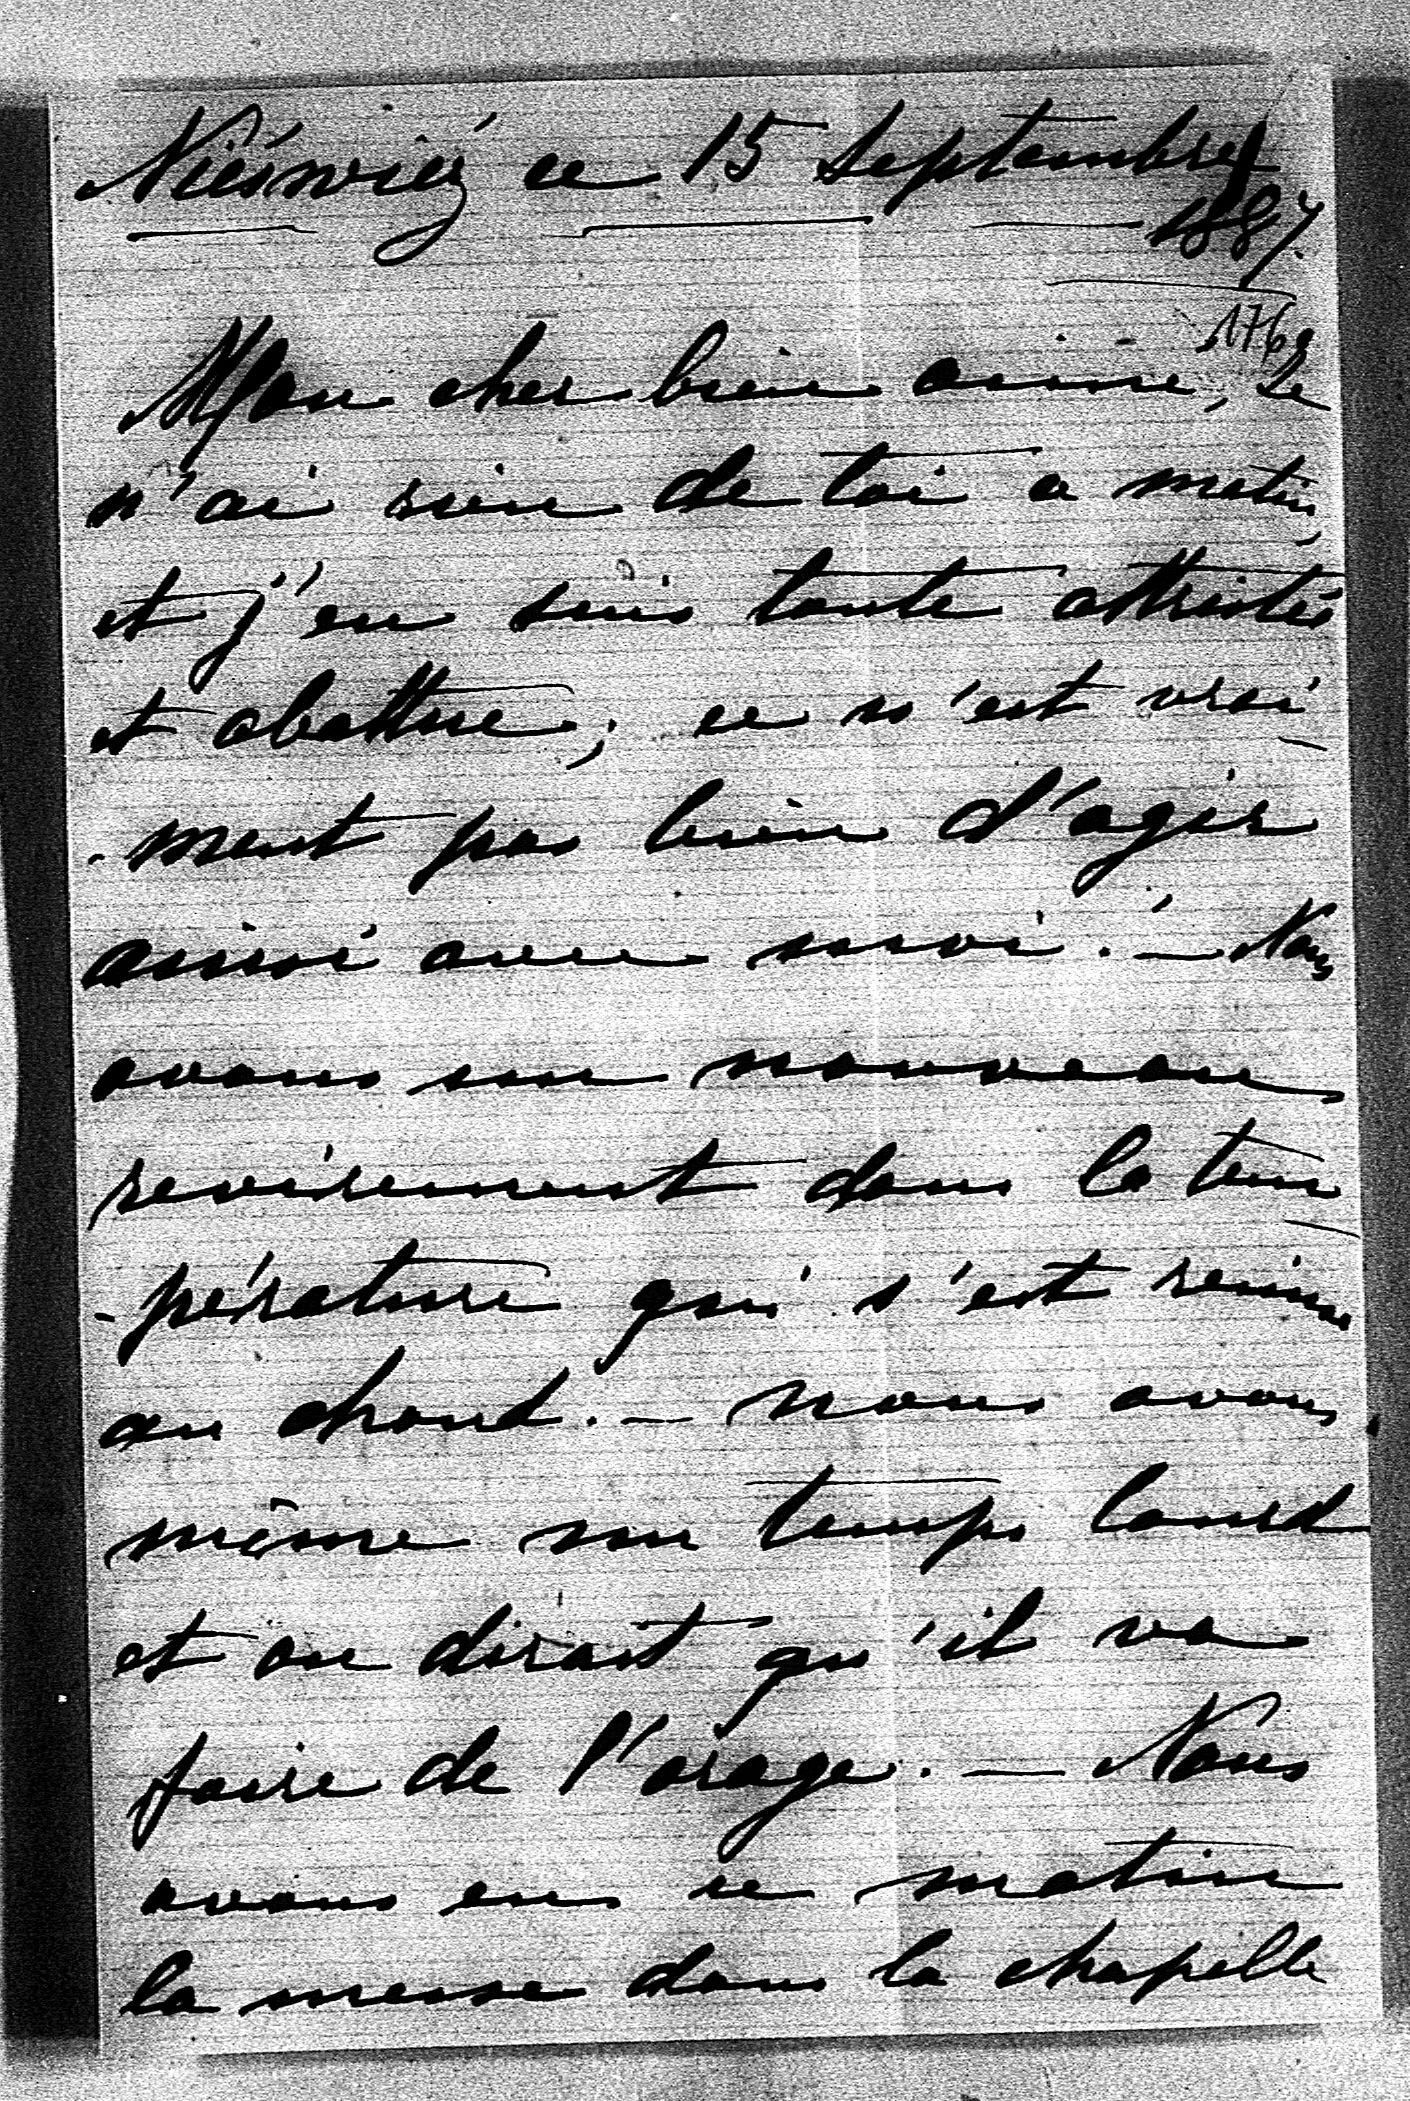 Nieśwież ce 15 Septembre
1887.
176
Mon cher bien aimé, Je
n'ai rien de toi ce matin,
et j'en suis toute attristée
et abattue; ce n'est vrai-
-ment pas bien d'agir
ainsi avec moi. — Nous
avons un nouveau
revirement dans la tem-
-pérature qui s'est remise
au chaud. — Nous avons
même un temps lourd
et on dirait qu'il va
faire de l'orage. — Nous
avons eu ce matin
la messe dans la chapelle